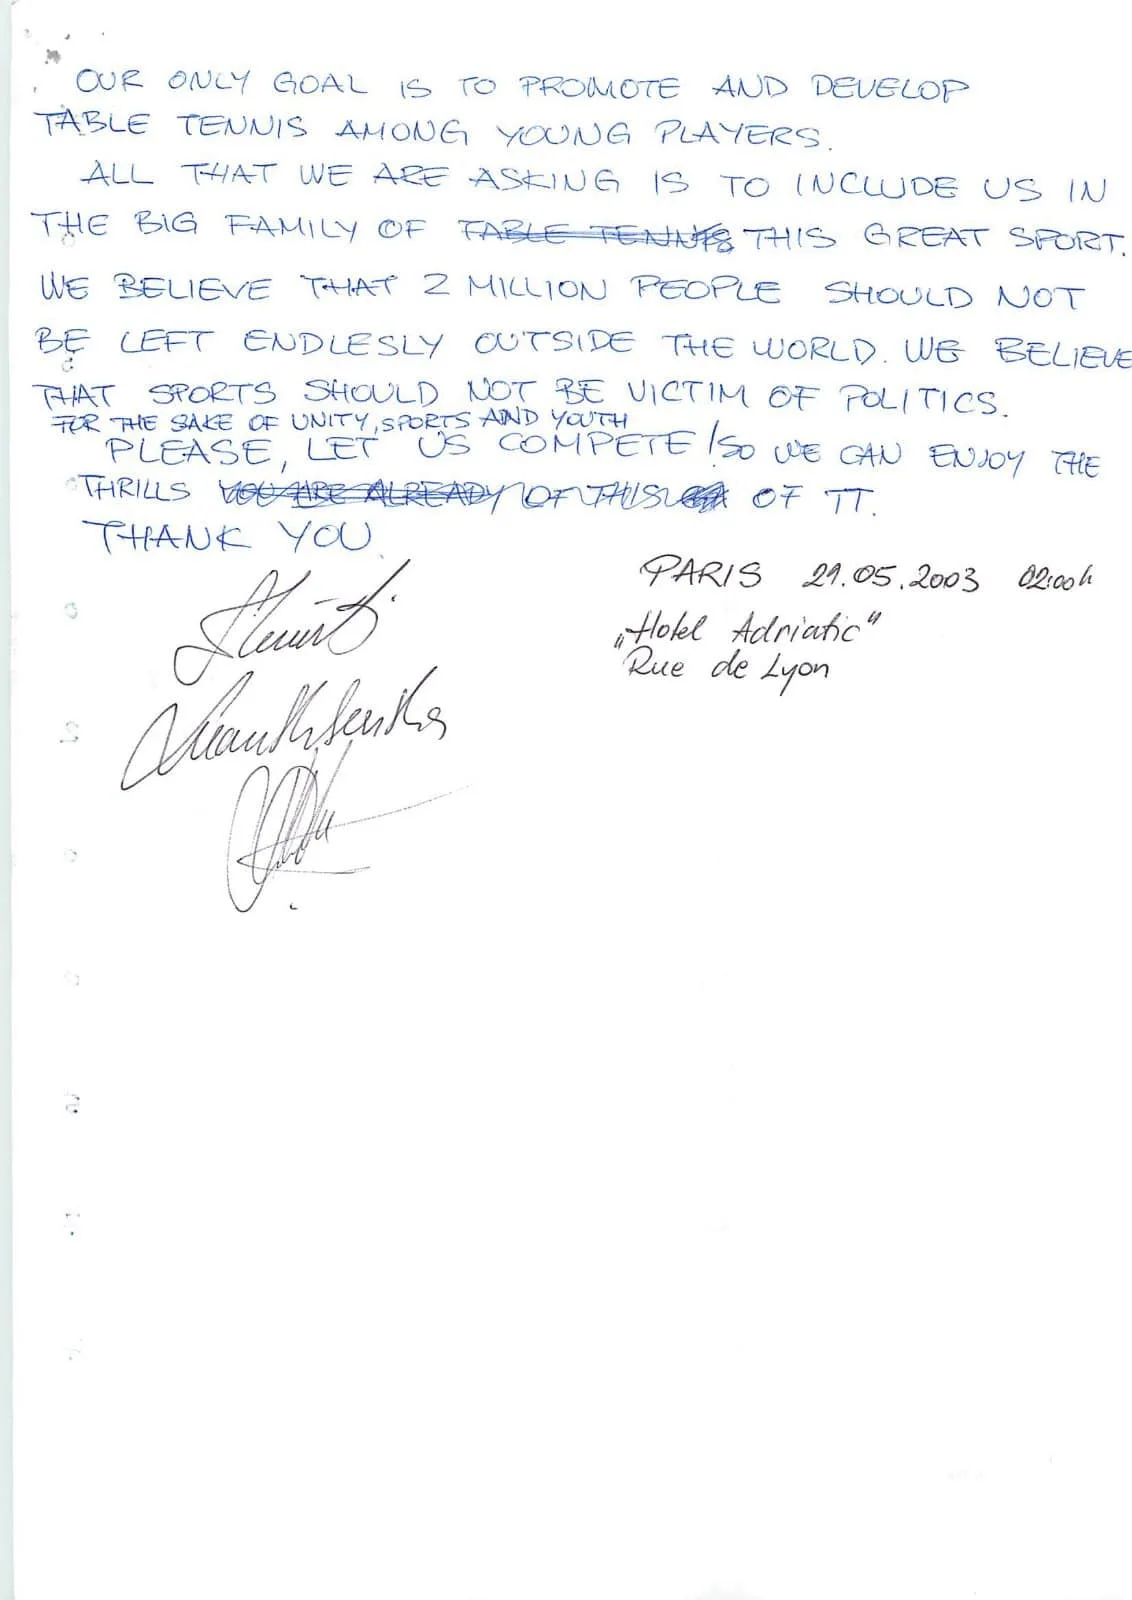 OUR ONLY GOAL IS TO PROMOTE AND DEVELOP
TABLE TENNIS AMONG YOUNG PLAYERS.
ALL THAT WE ARE ASKING IS TO INCLUDE US IN
THE BIG FAMILY OF TABLE TENNIS THIS GREAT SPORT.
WE BELIEVE THAT 2 MILLION PEOPLE SHOULD NOT
BE LEFT ENDLESLY OUTSIDE THE WORLD. WE BELIEVE
THAT SPORTS SHOULD NOT BE VICTIM OF POLITICS.
FOR THE SAKE OF UNITY, SPORTS AND YOUTH
PLEASE, LET US COMPETE / SO WE CAN ENJOY THE
THRILLS YOU ARE ALREADY OF THIS OF TT.
THANK YOU.
PARIS 21.05.2003 02:00h
„Hotel Adriatic"
Rue de Lyon